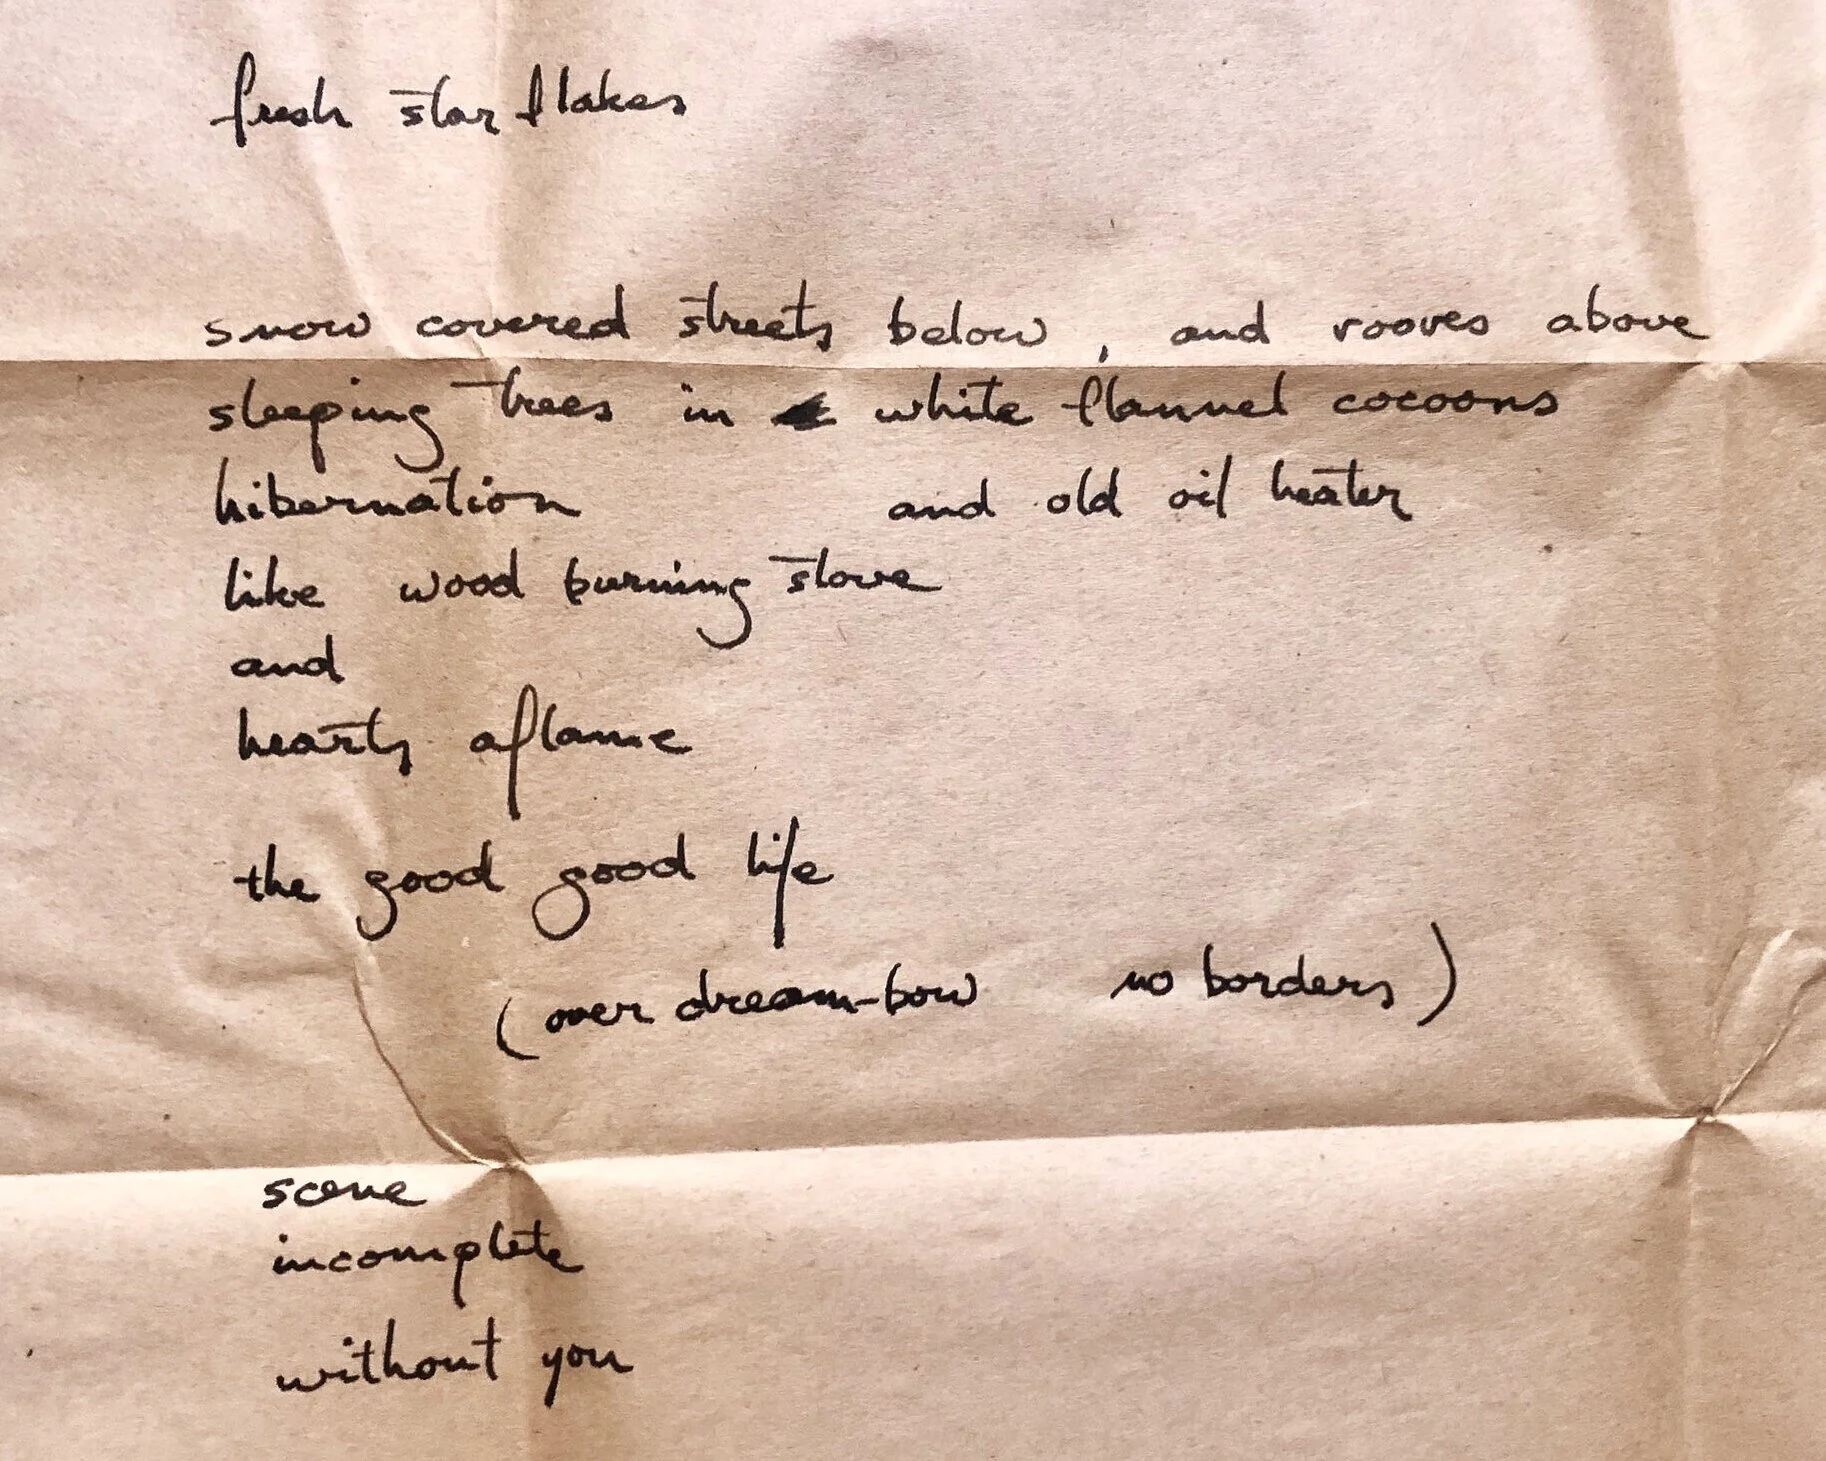 fresh star flakes
snow covered streets below, and rooves above
sleeping trees in white flannel cocoons
hibernation and old oil heater
like wood burning stove
and
hearts aflame
the good good life
(over dream-bow no borders)
scene
incomplete
without you